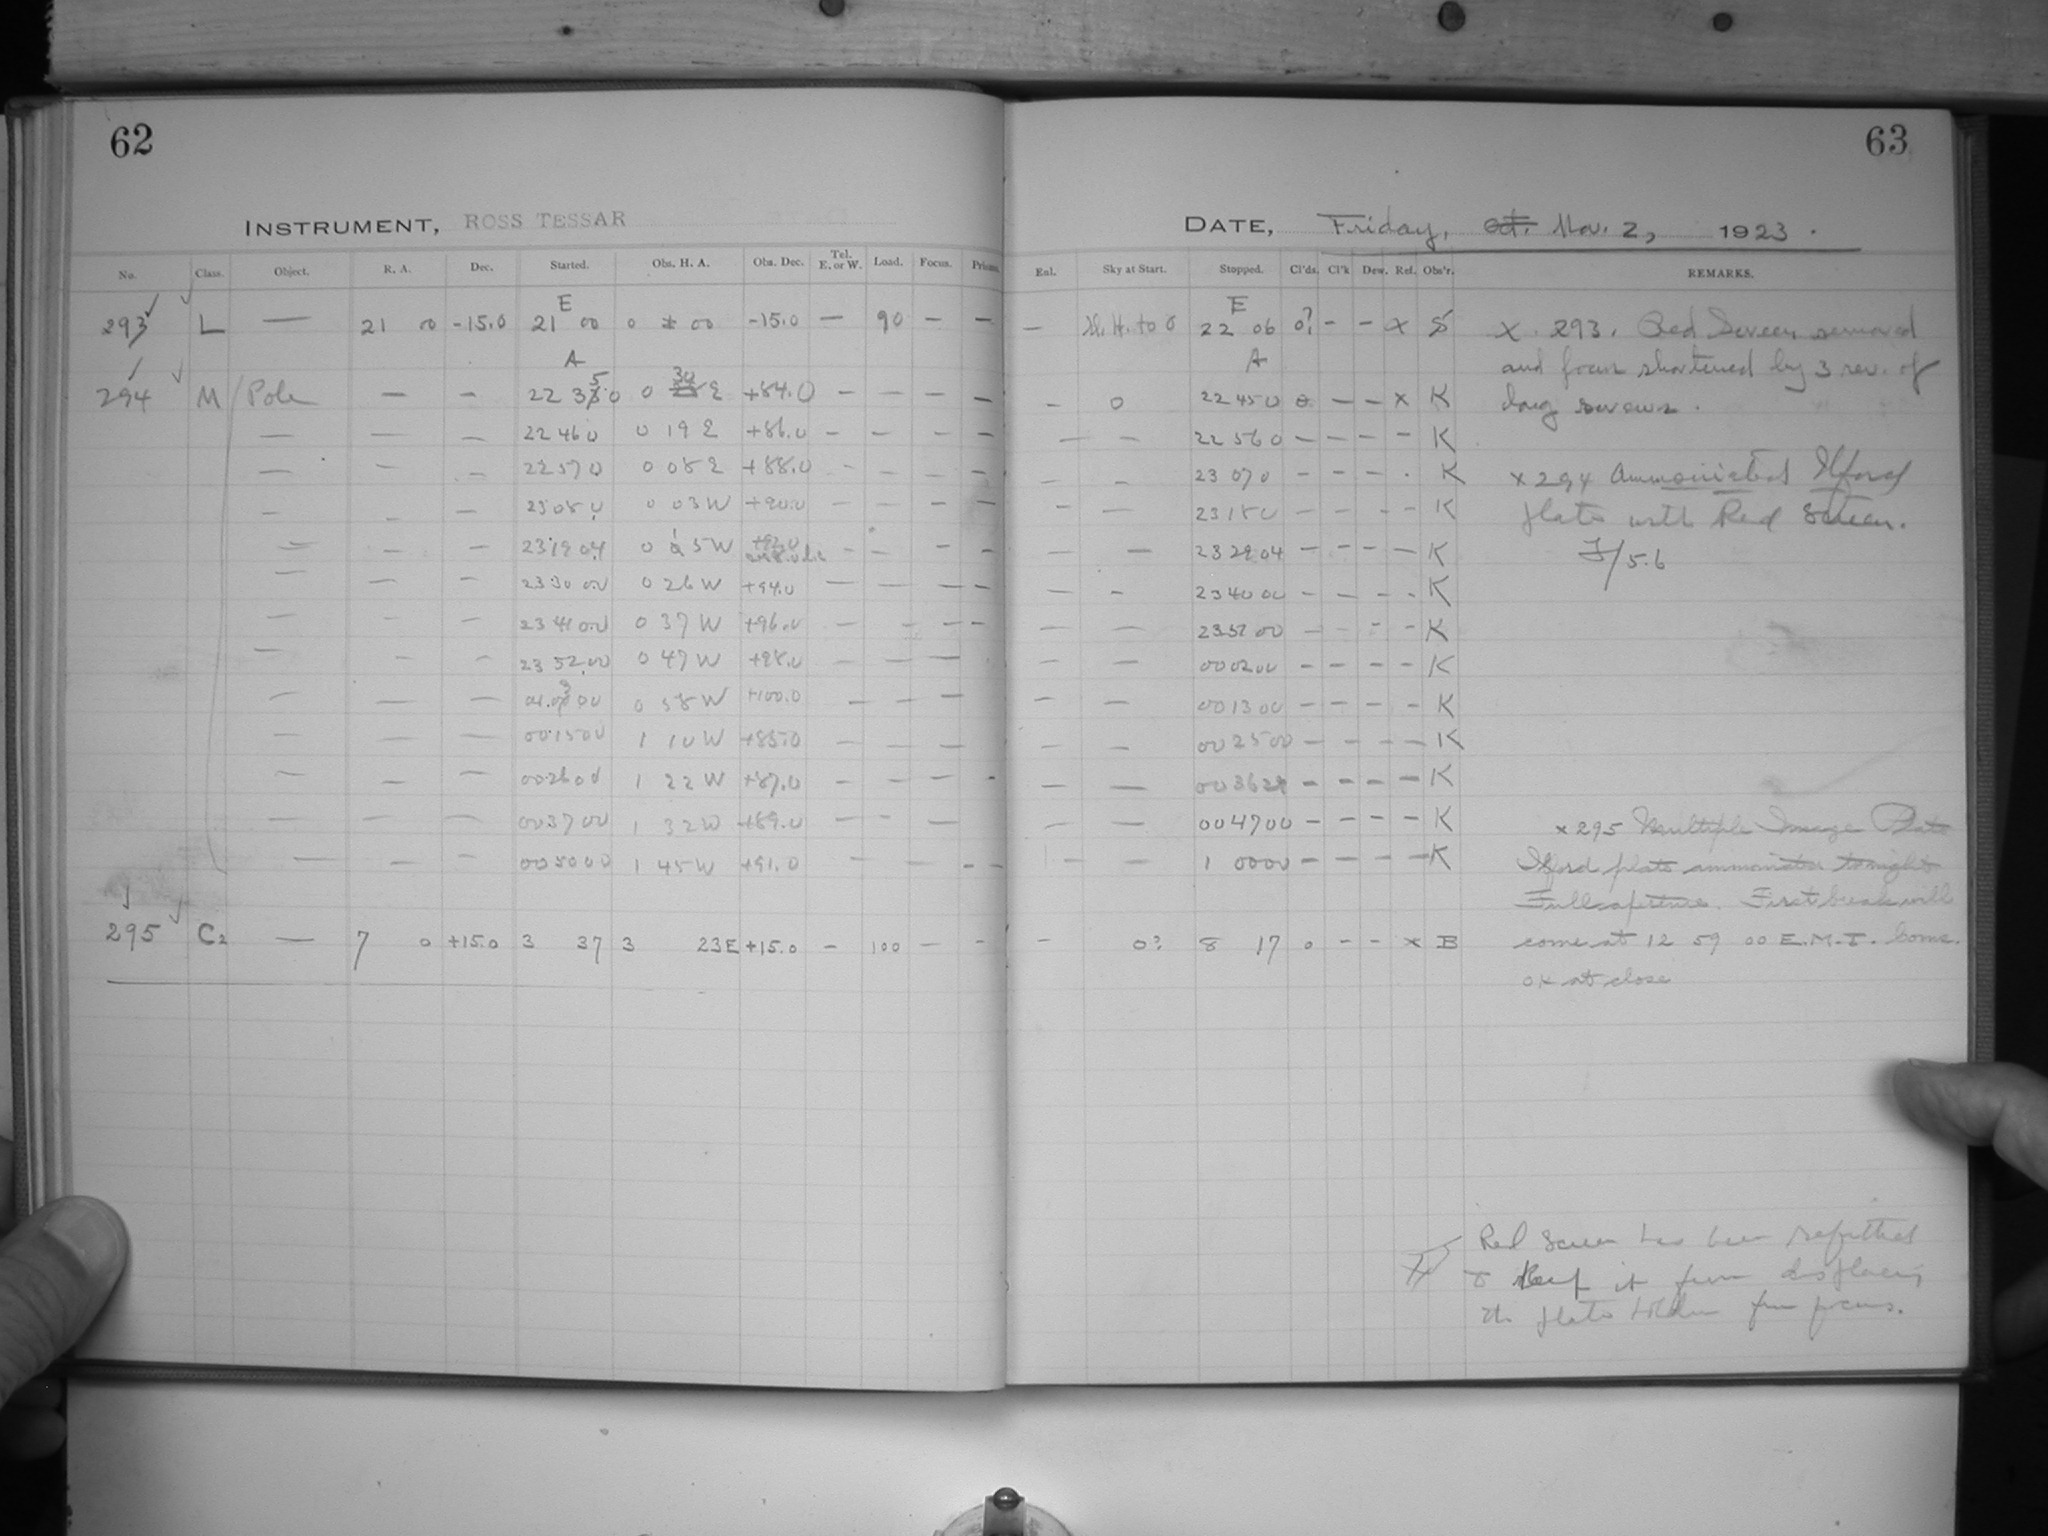 62
63
INSTRUMENT, ROSS TESSAR
DATE, Friday, Oct. Nov. 2, 1923.
No. Class. Object. R. A. Dec. Started. Obs. H. A. Obs. Dec. Tel. E. or W. Load. Focus. Prisms Enl. Sky at Start. Stopped. Cl'ds. Cl'k Dew. Ref. Obs'r. REMARKS.
E E
293 L — 21 0 -15.0 21 00 0 ± 00 -15.0 — 90 — — — to 0 22 06 0? - - x S x 293. Red Screen removed
A A and focus shortened by 3 rev. of
294 M Pole — — 22 35 0 0 30 E +84.0 — — — — — 0 22 45 0 0 — — x K long screws.
— — — 22 46 0 0 19 E +86.0 — — — — — — 22 56 0 — — — — K
— — — 22 57 0 0 08 E +88.0 — — — — — — 23 07 0 - - - . K x 294 Ammoniated Ilford
— — — 23 08 0 0 03 W +90.0 — — — — — — 23 18 0 — — — — K plate with Red Screen.
— — — 23 19 04 0 15 W +92.0 — — — — — — 23 29 04 — — — — K F/5.6
— — — 23 30 00 0 26 W +94.0 — — — — — — 23 40 00 — — — — K
— — — 23 41 00 0 37 W +96.0 — — — — — — 23 51 00 — — — — K
— — — 23 52 00 0 47 W +98.0 — — — — — 00 02 00 — — — — K
— — — 03 00 0 58 W +100.0 — — — — — 00 13 00 — — — — K
— — — 00 15 00 1 10 W +85.0 — — — — — — 00 25 00 — — — — K
— — — 00 26 00 1 22 W +87.0 — — — — — — 00 36 — — — — K
— — — 00 37 00 1 32 W +89.0 — — — — — 00 47 00 — — — — K x 295 Multiple Image Plate
— — — 00 50 00 1 45 W +91.0 — — — — — — 1 00 00 — — — — K Ilford plate ammoniated tonight
Full aperture. First break will
295 C2 — 7 0 +15.0 3 37 3 23 E +15.0 — 100 — — — 0? 8 17 0 - - x B come at 12 59 00 E.M.T. Coma.
OK at close
Red Screen has been refitted
to keep it from displacing
the plate holder from focus.